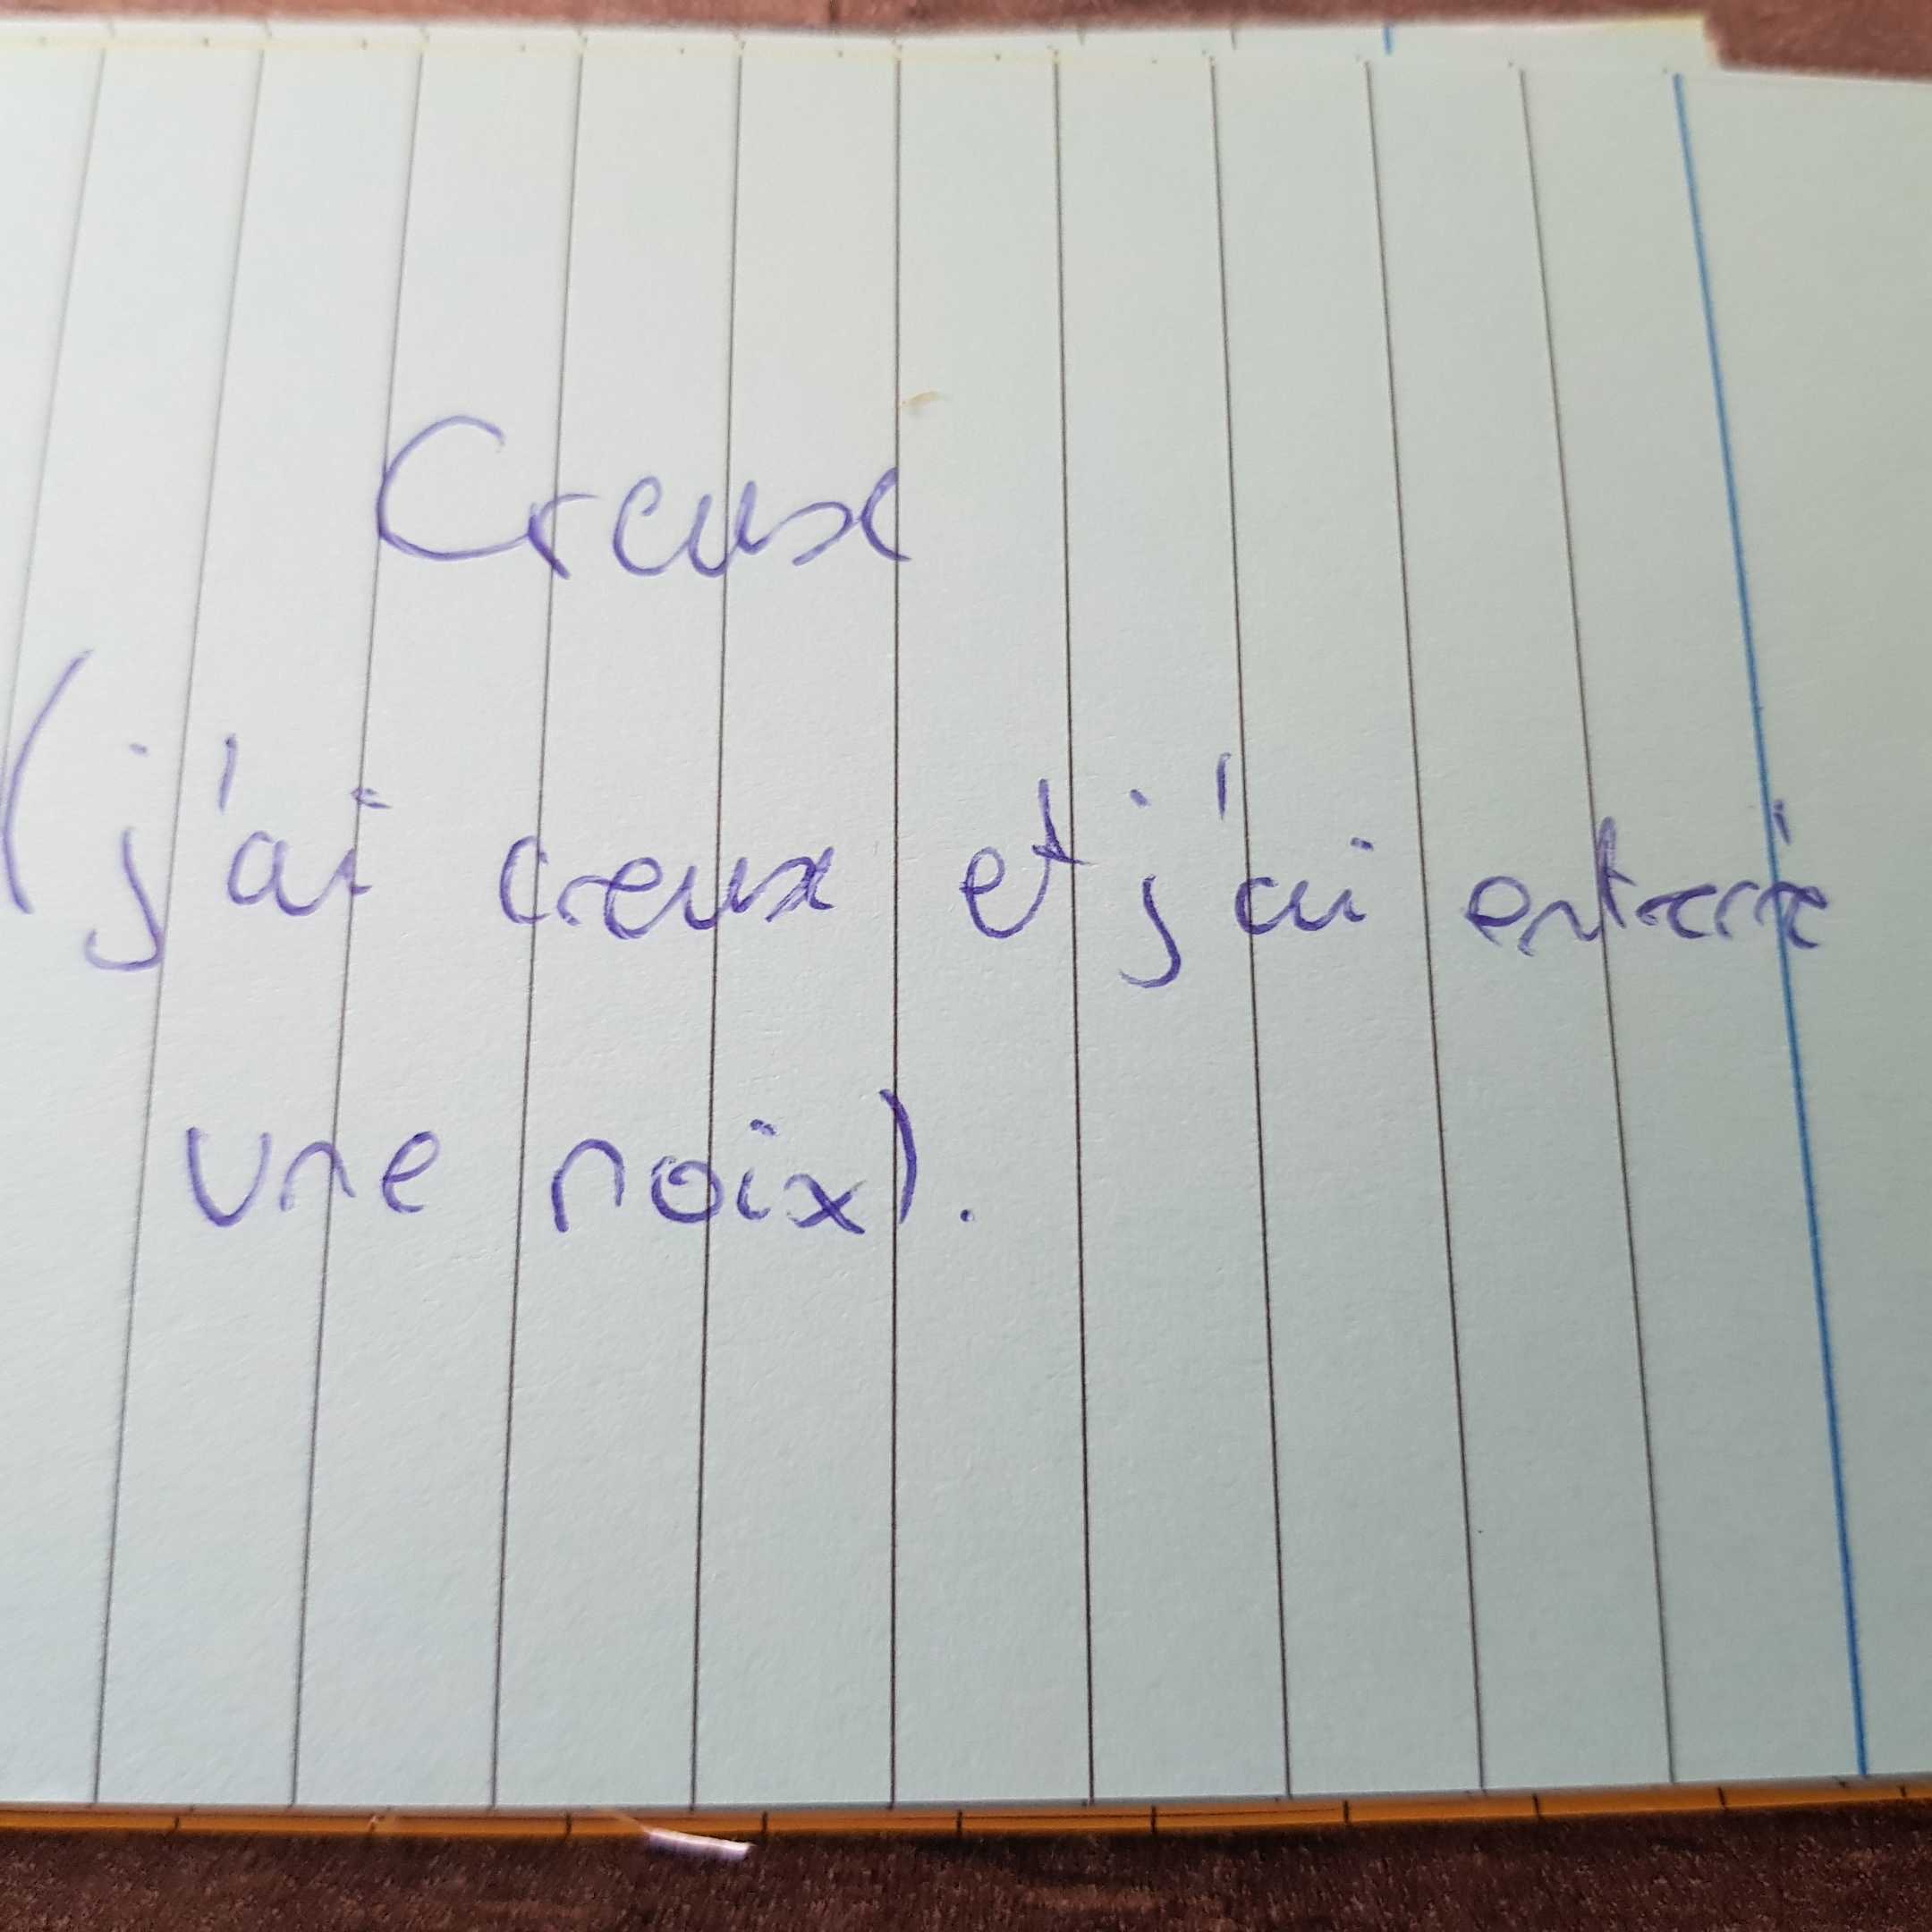 Creux
(j'ai creux et j'ai enterré
une noix).